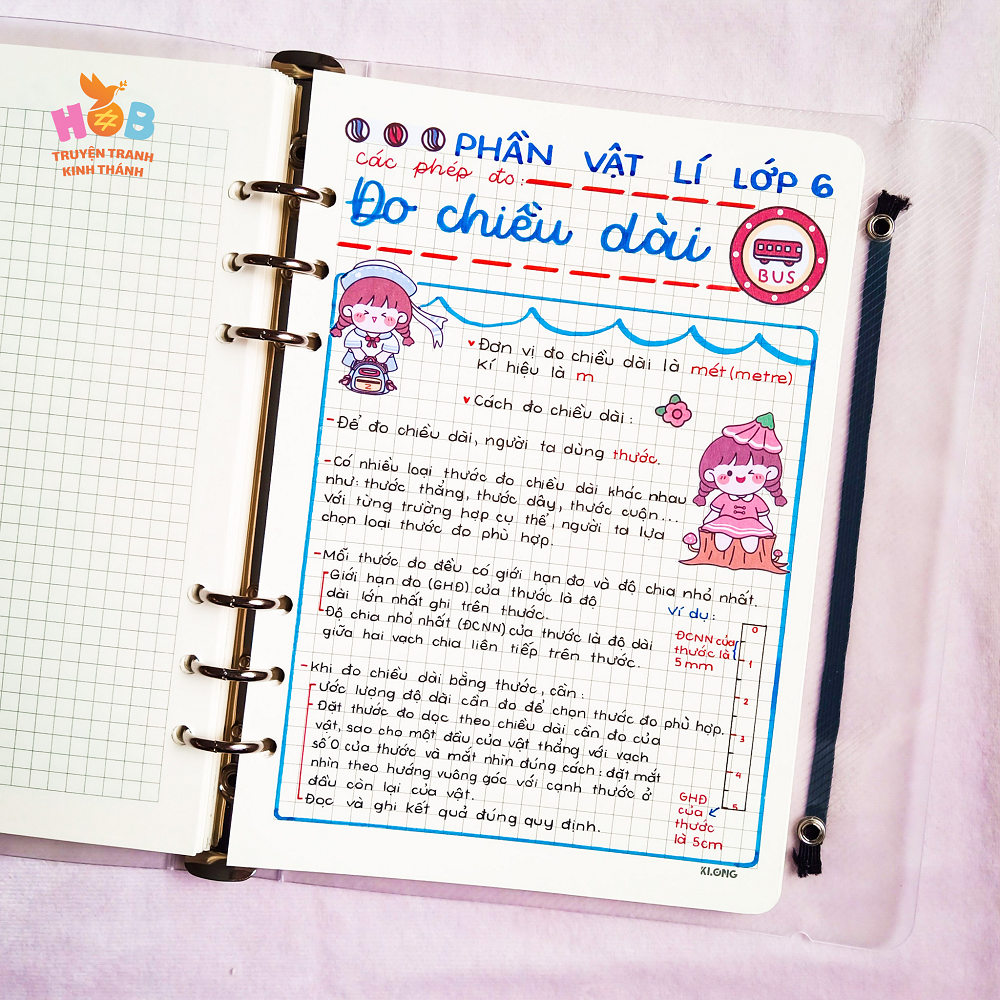 HOB
TRUYỆN TRANH
KINH THÁNH
PHẦN VẬT LÍ LỚP 6
Các phép đo:
Đo chiều dài
BUS
Đơn vị đo chiều dài là mét (metre)
Kí hiệu là m
Cách đo chiều dài:
-Để đo chiều dài, người ta dùng thước.
-Có nhiều loại thước đo chiều dài khác nhau
như: thước thẳng, thước dây, thước cuộn...
với từng trường hợp cụ thể, người ta lựa
chọn loại thước đo phù hợp.
-Mỗi thước đo đều có giới hạn đo và độ chia nhỏ nhất.
Giới hạn đo (GHĐ) của thước là độ
dài lớn nhất ghi trên thước.
Độ chia nhỏ nhất (ĐCNN) của thước là độ dài
giữa hai vạch chia liên tiếp trên thước.
Ví dụ:
ĐCNN của
thước là
5mm
0
1
2
3
4
5
-Khi đo chiều dài bằng thước, cần:
Ước lượng độ dài cần đo để chọn thước đo phù hợp.
-Đặt thước đo dọc theo chiều dài cần đo của
vật, sao cho một đầu của vật thẳng với vạch
số 0 của thước và mắt nhìn đúng cách: đặt mắt
nhìn theo hướng vuông góc với cạnh thước ở
đầu còn lại của vật.
Đọc và ghi kết quả đúng quy định.
GHĐ
của
thước
là 5cm
KLONG